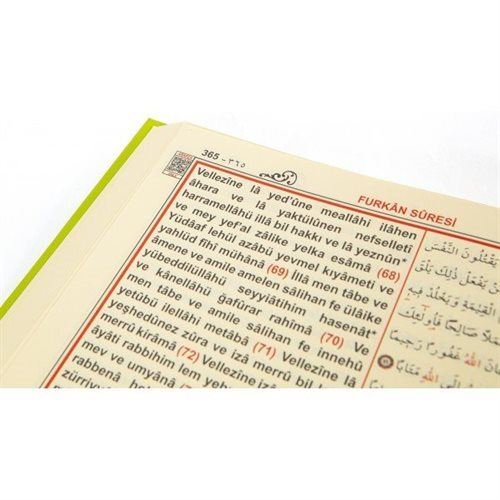 365 - ٣٦٥
FURKÂN SÛRESİ
Vellezîne lâ yed'ûne meallâhi ilâhen
âhara ve lâ yaktülûnen nefselletî
harramellâhü illâ bil hakkı ve lâ yeznûn*
ve mey yef'al zâlike yelka esâmâ (68)
Yüdâaf lehül azâbü yevmel kıyâmeti ve
yahlüd fîhî mühânâ (69) İllâ men tâbe ve
âmene ve amile amelen sâlihan fe ülâike
yübeddilüllâhü seyyiâtihim hasenât*
ve kânellâhü ğafûrar rahîmâ (70) Ve
men tâbe ve amile sâlihan fe innehû
yetûbü ilellâhi metâbâ (71) Vellezîne lâ
yeşhedûnez zûra ve izâ merrû bil
merrû kirâmâ (72) Vellezîne izâ
âyâti rabbihim lem
mev ve umyânâ
rabbenâ heb
النَّفْسَ
يَفْعَلْ ذٰلِكَ يَلْقَ
الْقِيٰمَةِ وَيَخْلُدْ فِيهِ
صَالِحًا فَاُولٰٓئِكَ
اللّٰهُ غَفُورًا رَحِيمًا
اللّٰهِ مَتَابًا